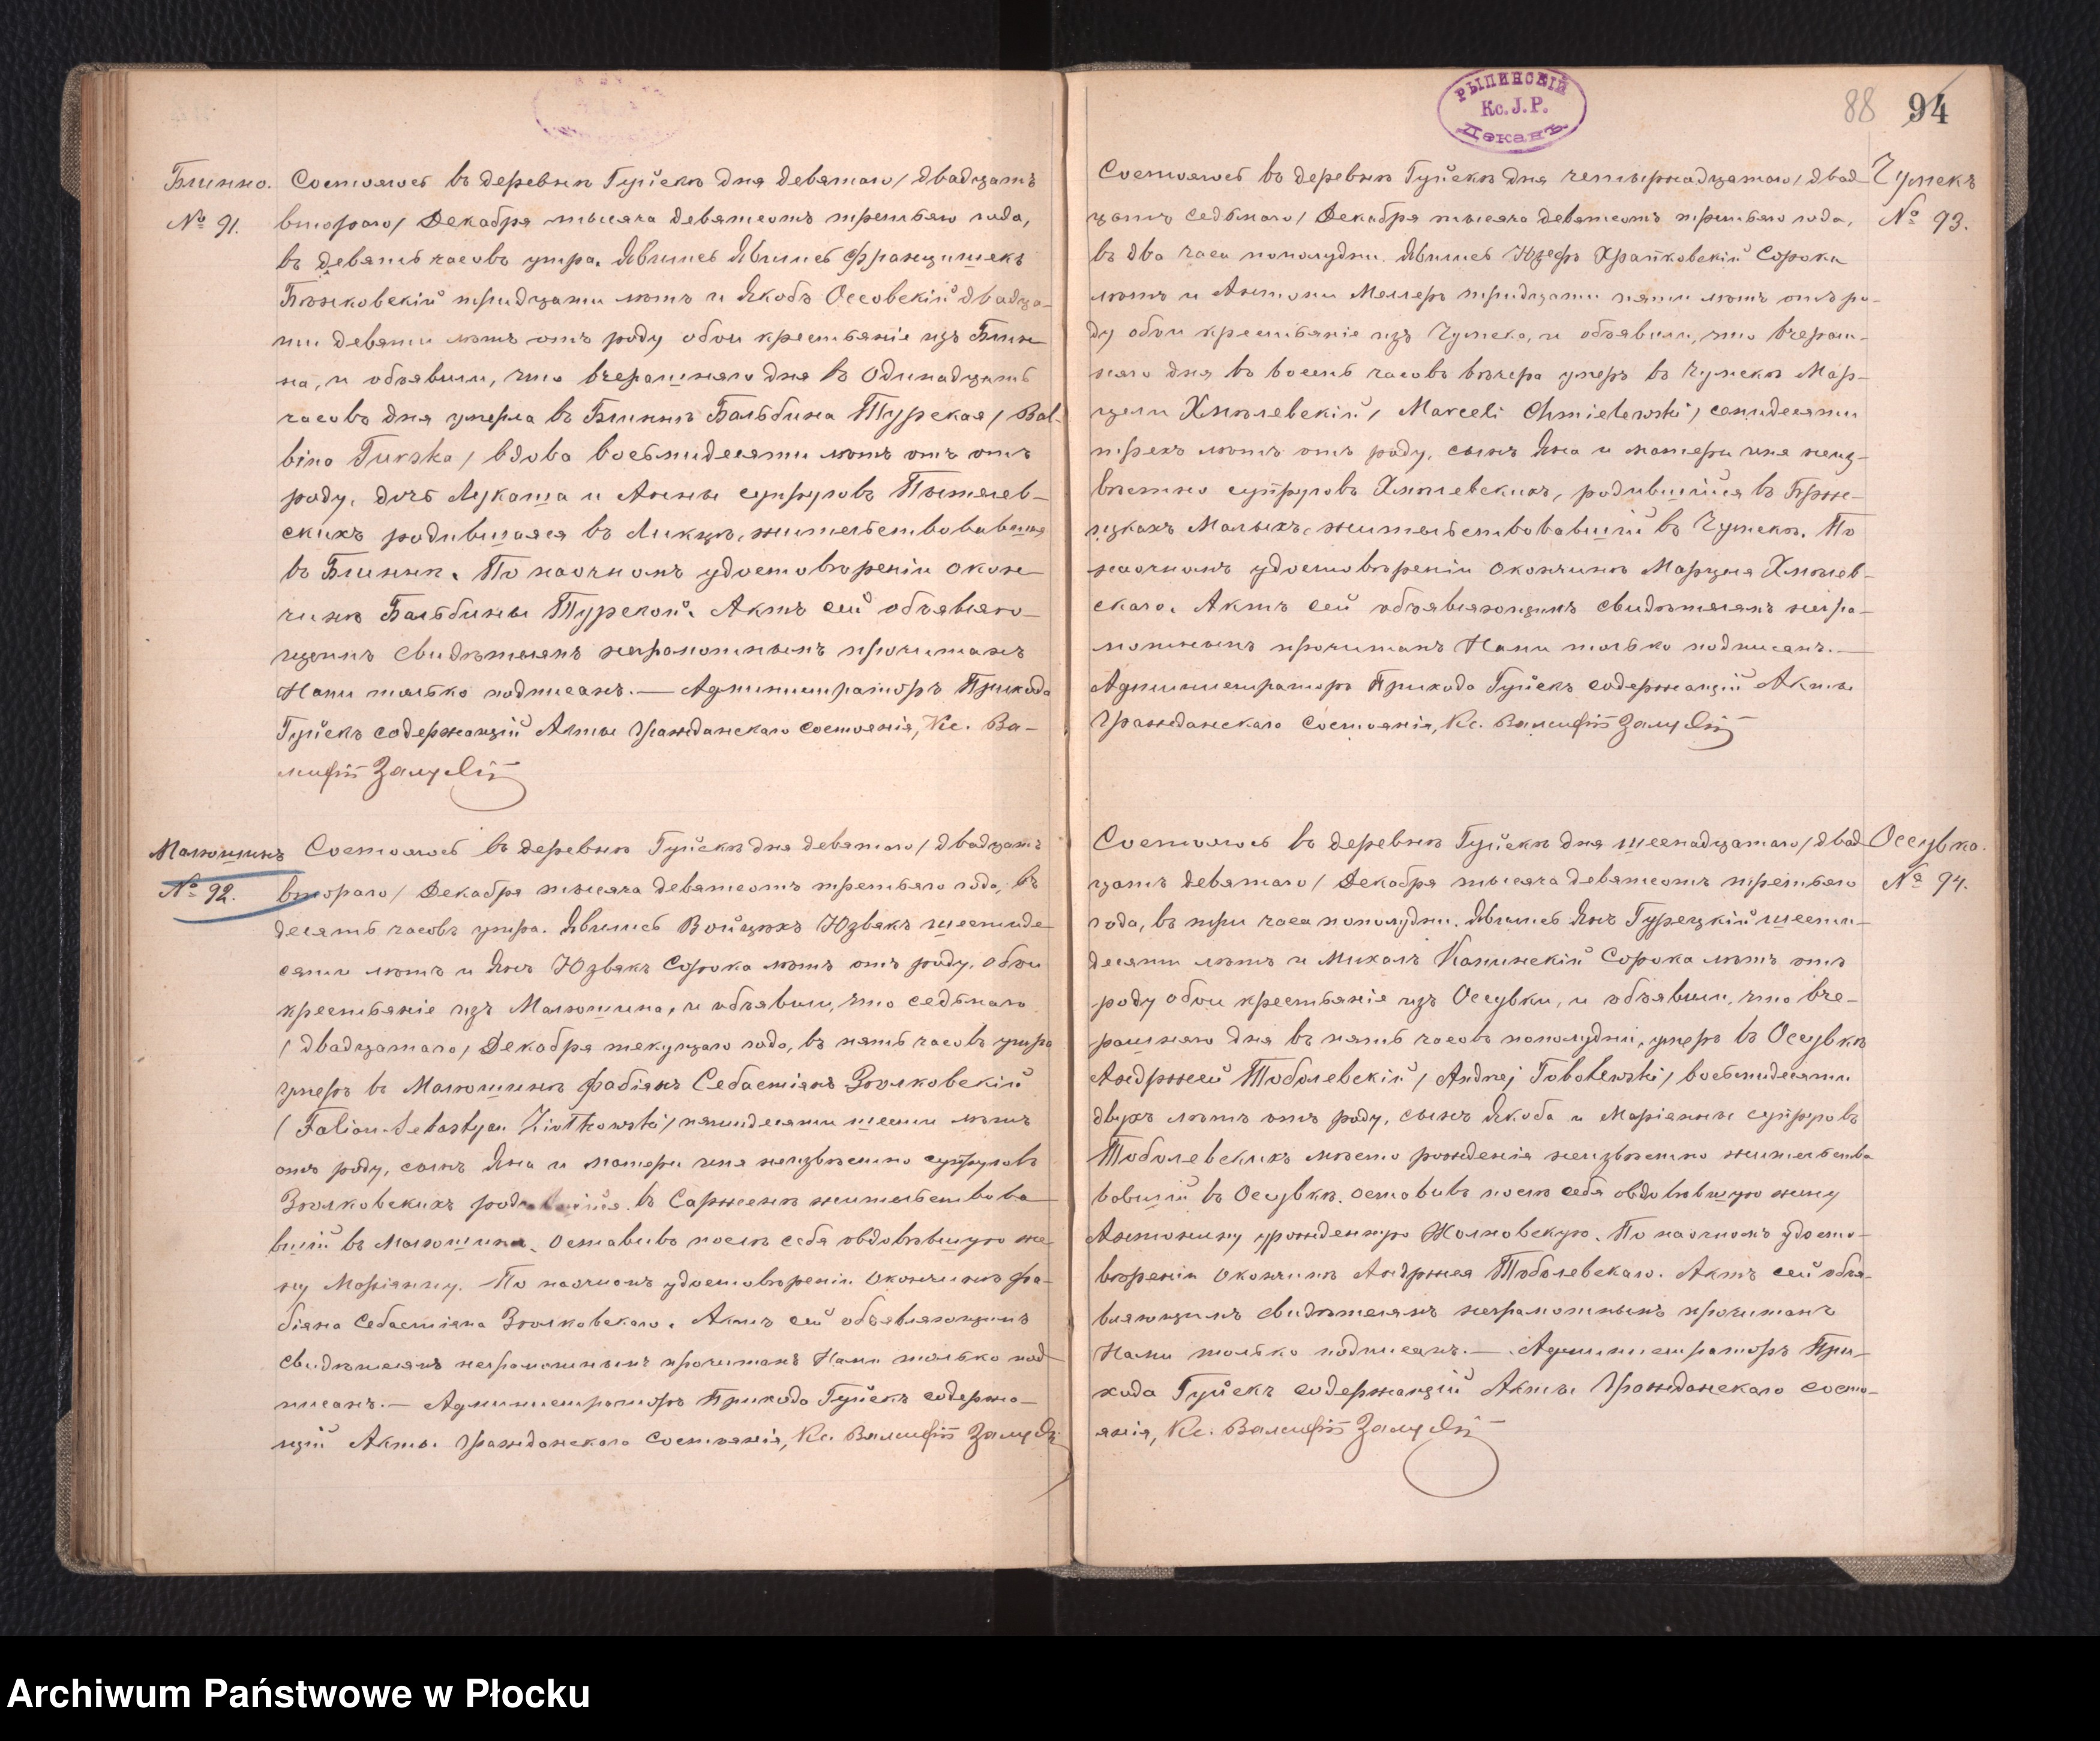 Блинно.
№ 91.
Состоялось въ деревнѣ Гуйскѣ дня девятаго / двадцать
втораго / Декабря тысяча девятсотъ третьяго года,
въ девять часовъ утра. Явились Явились Францишекъ
Бѣнковскій тридцати лѣтъ и Якобъ Оссовскій двадца-
ти девяти лѣтъ отъ роду обои крестьяніе изъ Блин-
на, и объявили, что вчерашняго дня въ одинадцать
часовъ дня умерла въ Блиннѣ Бальбина Турская / Bal-
bina Turska / вдова восьмидесяти лѣтъ отъ отъ
роду, дочь Лукаша и Анны супруговъ
скихъ родившаяся въ жительствовавшая
въ Блиннѣ. По наочномъ удостовѣреніи о кон-
чинѣ Бальбины Турской. Актъ сей объявляю-
щимъ свидѣтелямъ неграмотнымъ прочитанъ
Нами только подписанъ. — Администраторъ Прихода
Гуйскъ содержащій Акты Гражданскаго состоянія, Кс. Ва-
Малюшинъ
№ 92.
Состоялось въ деревнѣ Гуйскѣ дня девятаго / двадцать
втораго / Декабря тысяча девятсотъ третьяго года, въ
десять часовъ утра. Явились Войцѣхъ Юзвякъ шестиде-
сяти лѣтъ и Янъ Юзвякъ сорока лѣтъ отъ роду, обои
крестьяніе изъ Малюшина, и объявили, что седьмаго
/ двадцатаго / Декабря текущаго года, въ пять часовъ утра
умеръ въ Малюшинѣ Фабіянъ Себастіянъ Зіолковскій
( Fabian Sebastyan Ziółkowski ) пятидесяти шести лѣтъ
отъ роду, сынъ Яна и матери имя неизвѣстно супруговъ
Зіолковскихъ родившійся въ жительствова-
вшій въ Малюшинѣ. Оставивъ послѣ себя овдовѣвшую же-
ну Маріянну. По наочномъ удостовѣреніи о кончинѣ Фа-
біяна Себастіяна Зіолковскаго. Актъ сей объявляющимъ
свидѣтелямъ неграмотнымъ прочитанъ Нами только под-
писанъ. — Администраторъ Прихода Гуйскъ содержа-
щій Акты Гражданскаго состоянія, Кс.
РЫПИНСКІЙ
Кс. J. P.
Деканъ
88 94
Чумскъ
№ 93.
Состоялось въ деревнѣ Гуйскѣ дня четырнадцатаго / двад-
цать седьмаго / Декабря тысяча девятсотъ третьяго года,
въ два часа пополудни. Явились Юзефъ Храпковскій сорока
лѣтъ и Антони Меллеръ тридцати пяти лѣтъ отъ ро-
ду обои крестьяніе изъ Чумска, и объявили, что вчераш-
няго дня въ восемь часовъ вечера умеръ въ Чумскѣ Мар-
цели Хмѣлевскій / Marceli Chmielewski / семидесяти
трехъ лѣтъ отъ роду, сынъ Яна и матери имя неиз-
вѣстно супруговъ Хмѣлевскихъ, родившійся въ Брже-
щкахъ Малыхъ, жительствовавшій въ Чумскѣ. По
наочномъ удостовѣреніи о кончинѣ Хмѣлев-
скаго. Актъ сей объявляющимъ свидѣтелямъ негра-
мотнымъ прочитанъ Нами только подписанъ. —
Администраторъ Прихода Гуйскъ содержащій Акты
Гражданскаго состоянія, Кс.
Оссувка.
№ 94.
Состоялось въ деревнѣ Гуйскѣ дня шеснадцатаго / двад-
цать девятаго / Декабря тысяча девятсотъ третьяго
года, въ три часа пополудни. Явились Янъ Гурецкій шести-
десяти лѣтъ и Михалъ Калинскій сорока лѣтъ отъ
роду обои крестьяніе изъ Оссувки, и объявили, что вче-
рашняго дня въ пять часовъ пополудни, умеръ въ Осувкѣ
Андржей Тоболевскій / Andrzej Tobolewski / восьмидесяти
двухъ лѣтъ отъ роду, сынъ Якоба и Маріянны супруговъ
Тоболевскихъ мѣсто рожденія неизвѣстно жительство-
вавшій въ Осувкѣ. оставивъ послѣ себя овдовѣвшую жену
Антонину урожденную По наочномъ удосто-
вѣреніи о кончинѣ Андржея Тоболевскаго. Актъ сей объя-
вляющимъ свидѣтелямъ неграмотнымъ прочитанъ
Нами только подписанъ. — Администраторъ При-
хода Гуйскъ содержащій Акты Гражданскаго состо-
янія, Кс.
Archiwum Państwowe w Płocku